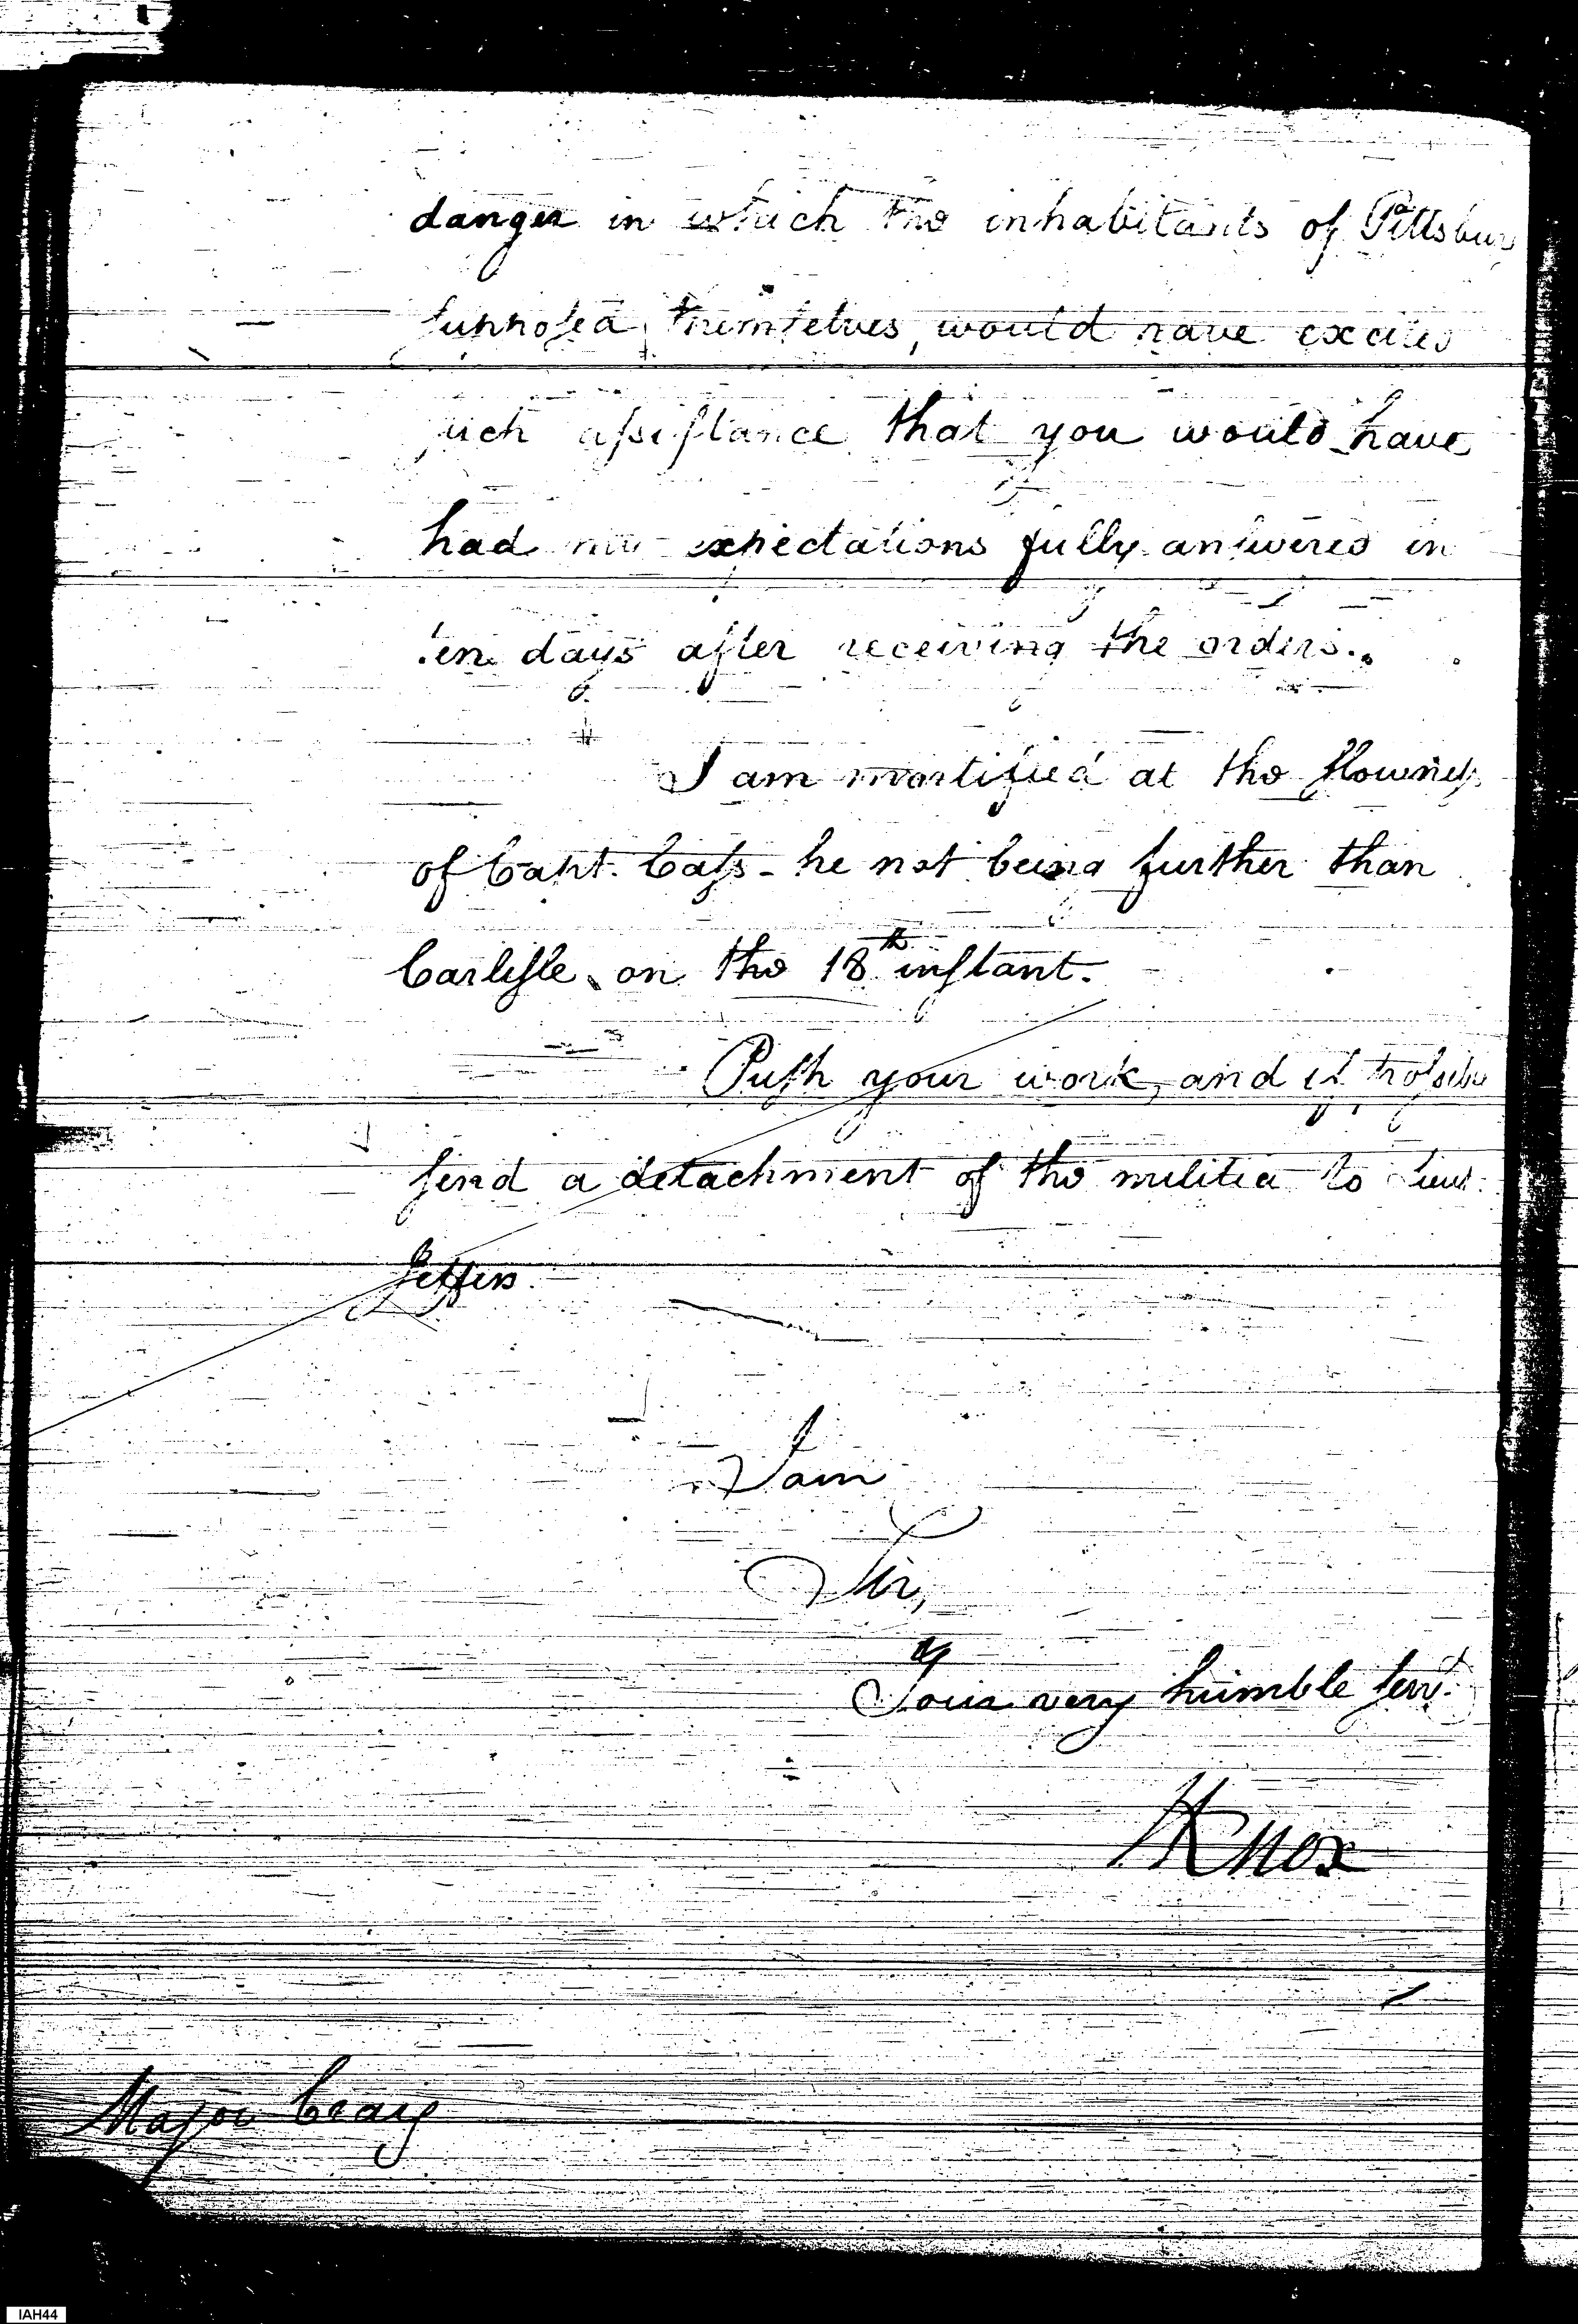 danger in which the inhabitants of Pittsburg
supposed themselves, would have excited
such assistance that you would have
had my expectations fully answered in
ten days after receiving the orders.
I am mortified at the slowness
of Capt. Cass - he not being further than
Carlisle, on the 18th instant.
Push your work, and if possible
send a detachment of the militia to Lieut.
Jeffers.
I am
Sir,
Your very humble servt.
HKnox
Major Craig
IAH44